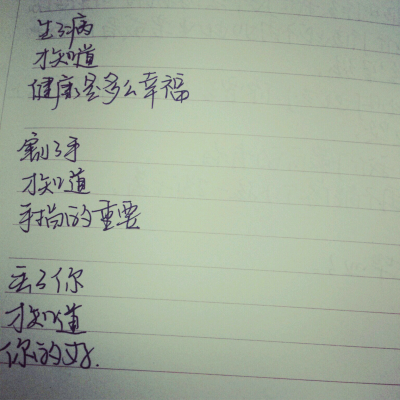 生了病
才知道
健康是多么幸福
割了手
才知道
手指的重要
丢了你
才知道
你的好.